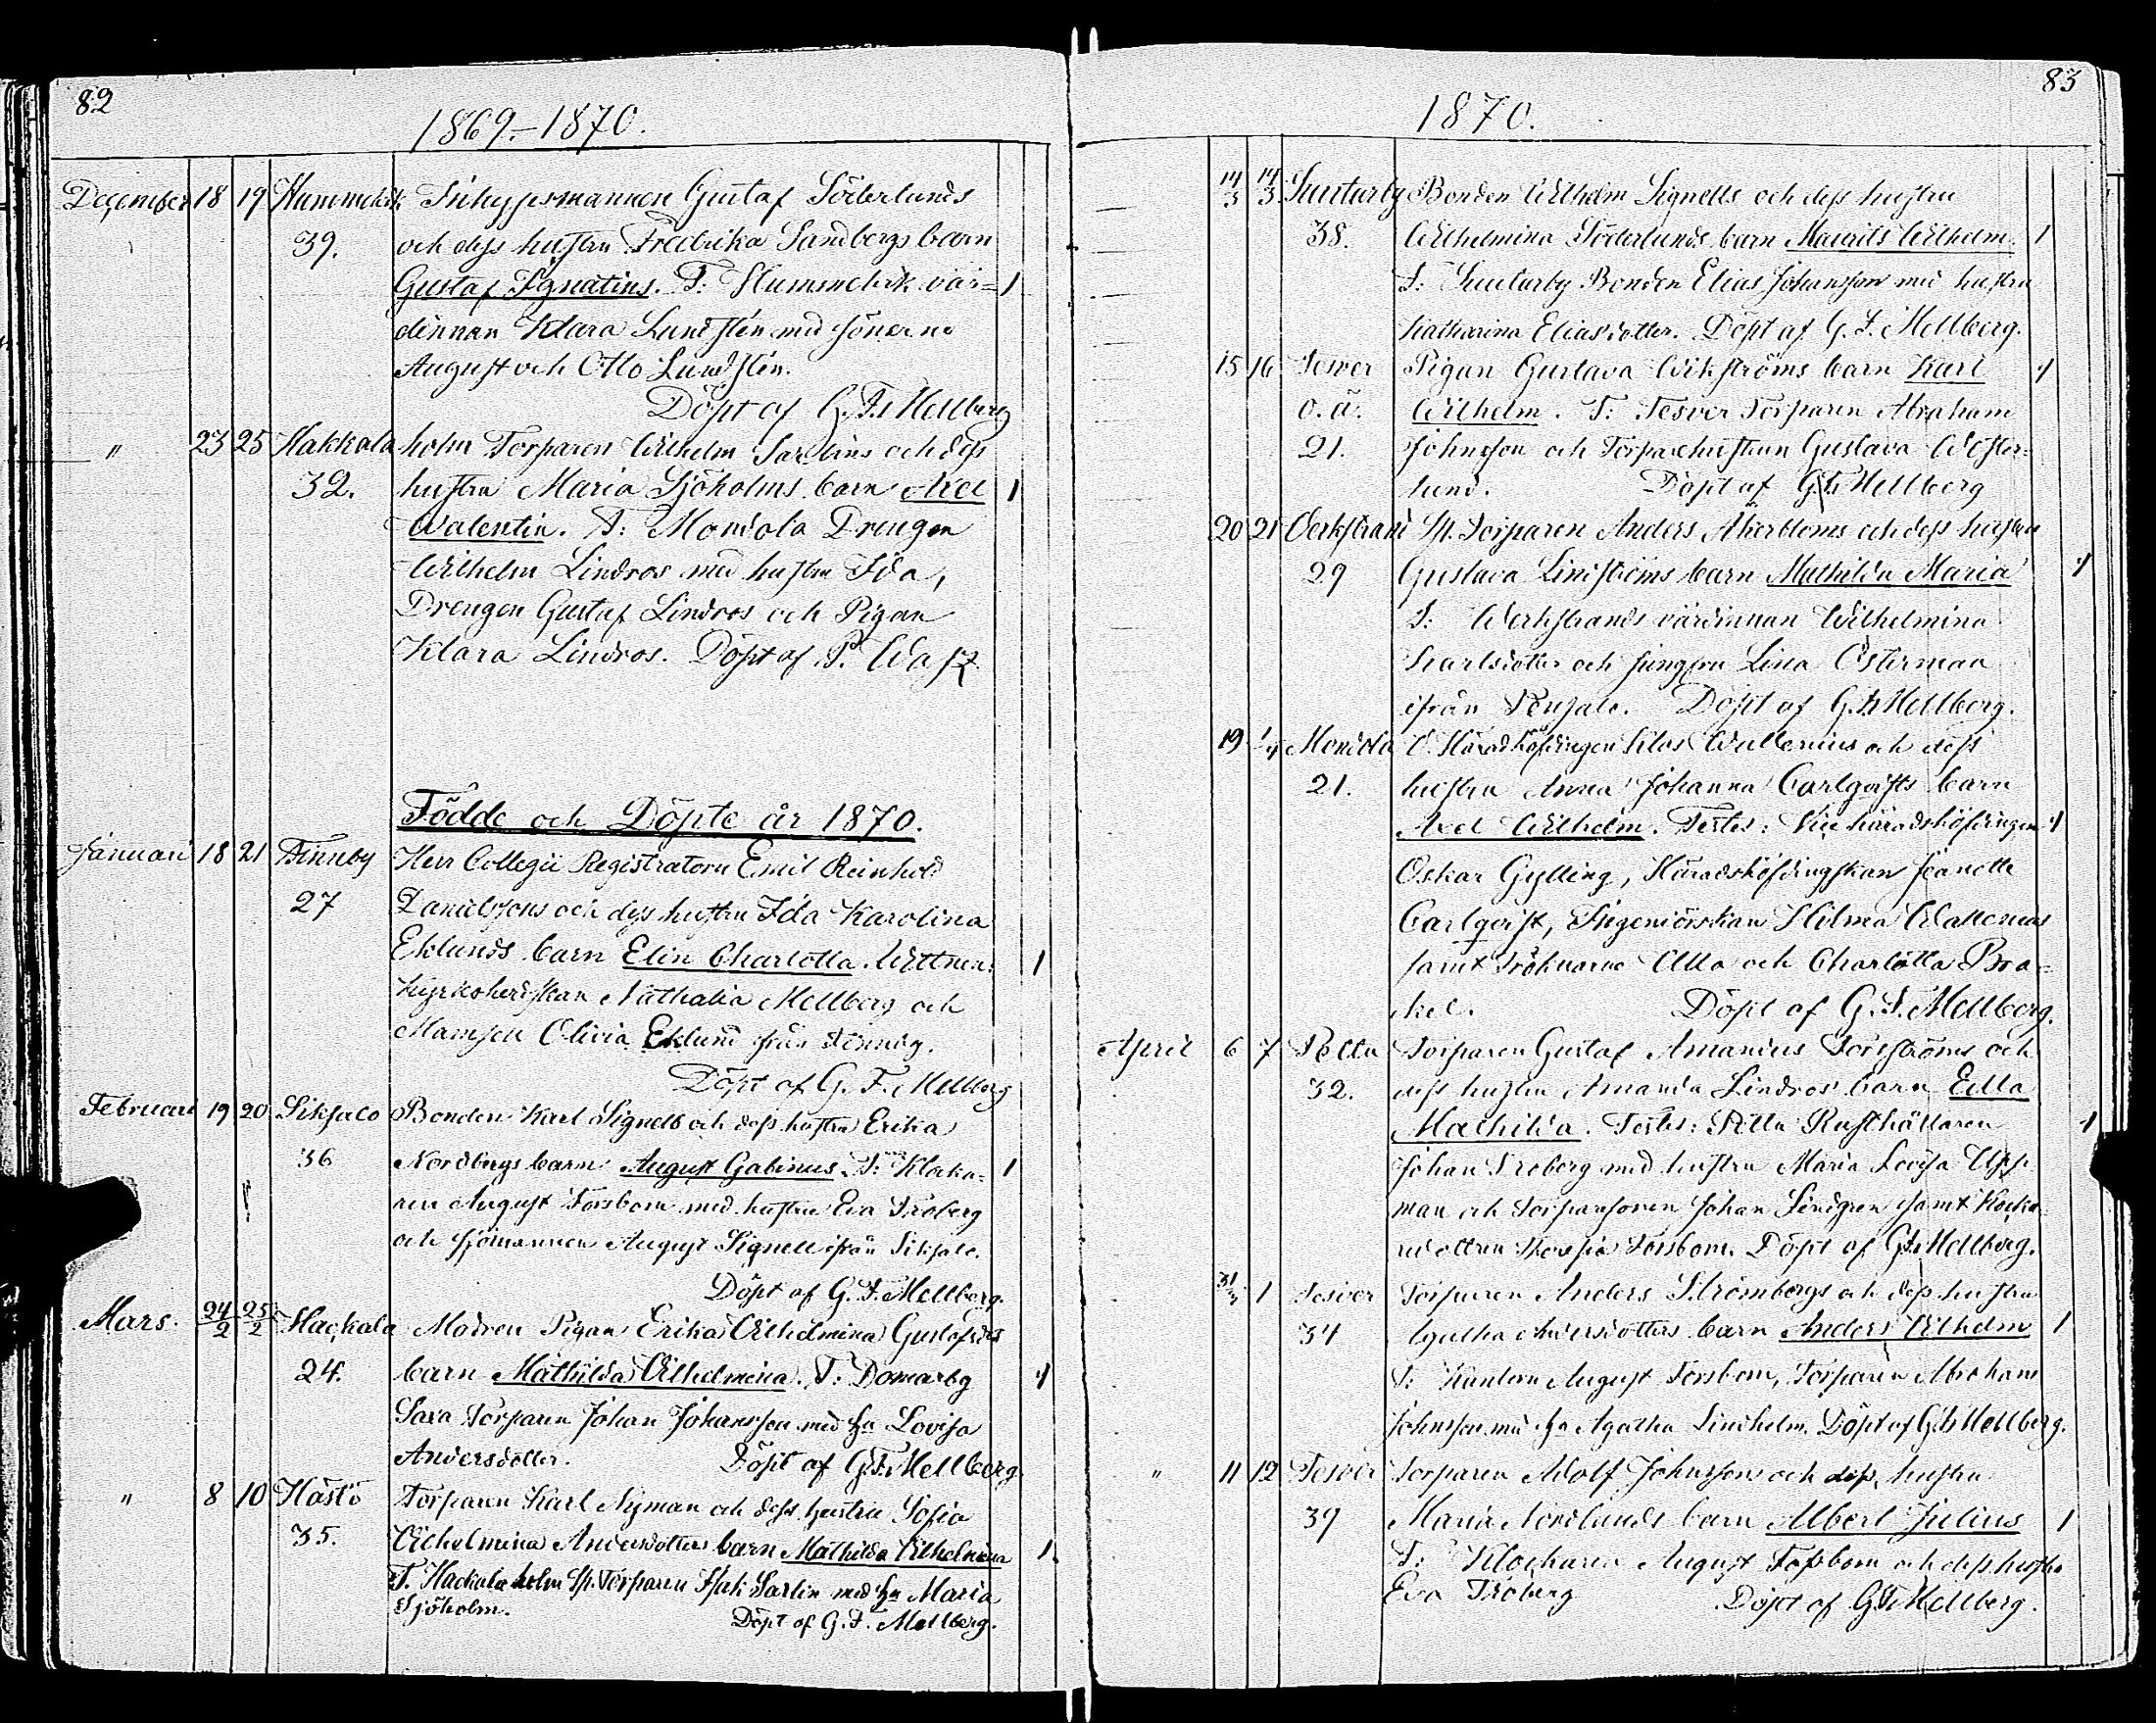 82
1869.-1870.
December 18 19 Hummelvik Inhysesmannen Gustaf Söderlunds
39. och dess hustru Fredrika Sandbergs barn
Gustaf Ignatius. T: Hummelvik vär= 1
dinnan Klara Lundsten med sönerne
August och Otto Lundsten.
Döpt af G. F. Mellberg
" 23 25 Hakkala holm Torparen Wilhelm Sarlins och dess
32. hustru Maria Sjöholms barn Axel 1
Walentin. T: Mondola Drengen
Wilhelm Lindros med hustru Ida,
Drengen Gustaf Lindros och Pigan
Klara Lindros. Döpt af P.
Födde och Döpte år 1870.
Januari 18 21 Finnby Herr Collegii Registratorn Emil Reinhold
27 Danielssons och dess hustru Ida Karolina
Eklunds barn Elin Charlotta. Wittnen: 1
Kyrkoherdskan Nathalia Mellberg och
Mamsell Olivia Eklund från Finnby.
Döpt af G. F. Mellberg
Februari 19 20 Siksalo Bonden Karl Signells och dess hustru Erika
36 Nordbergs barn August Gabinus. T: Klocka= 1
ren August Forsbom med hustru Eva Fröberg
och sjömannen August Signell ifrån Siksalo.
Döpt af G. F. Mellberg.
Mars. 24/2 25/2 Hackala Modren Pigan Erika Wilhelmina Gustafsdrs
24. barn Mathilda Wilhelmina. T: Domarby 1
Sara Torparen Johan Johansson med hu Lovisa
Andersdotter. Döpt af G. F. Mellberg.
" 8 10 Hästö Torparen Karl Nyman och dess hustru Sofia
35. Wilhelmina Andersdotters barn Mathilda Wilhelmina 1.
T. Hackala holm Sp. Torparen Isak Sarlin med hu Maria
Sjöholm. Döpt af G. F. Mellberg.
83
1870.
14/3 14/3 Suutarby Bonden Wilhelm Signells och dess hustru
38. Wilhelmina Söderlunds barn Maurits Wilhelm. 1
T: Suutarby Bonden Elias Johansson med hustru
Katharina Eliasdotter. Döpt af G. F. Mellberg.
15 16 Tesver Pigan Gustava Wikströms barn Karl 1
o. ä. Wilhelm. T: Tesver Torparen Abraham
21. Johnsson och Torparehustrun Gustava Wester=
lund. Döpt af G. F. Mellberg
20 21 Verkstrand Sp. Torparen Anders Åkerbloms och dess hustru
29 Gustava Lindströms barn Mathilda Maria 1
T: Werkstrands värdinnan Wilhelmina
Karlsdotter och jungfru Lina Österman
ifrån Pensalo. Döpt af G. F. Mellberg.
19 1/4 Mondola V. Häradshöfdingen Klas Wallenius och dess
21. hustru Anna Johanna Carlqvists barn
Axel Wilhelm. Testes: Vice häradshöfdingen 1
Oskar Gylling, Häradshöfdingskan Jeanette
Carlqvist, Ingeniörskan Hilma Wallenius
samt Fröknarna Ulla och Charlotta Bra=
kel. Döpt af G. F. Mellberg.
April 6 7 Pettu Torparen Gustaf Amandus Forsströms och
32. dess hustru Amanda Lindros' barn Edla
Mathilda. Testes: Pettu Rusthållaren 1
Johan Froberg med hustru Maria Lovisa Upp
man och Torparsonen Johan Lindgren samt Klocka
redottren Theresia Forsbom. Döpt af G. F. Mellberg.
31/3 1 Tesver Torparen Anders Strömbergs och dess hustru
34 Agatha Andersdotters barn Anders Wilhelm 1
T: Kantorn August Forsbom, Torparen Abraham
Johnsson med hu Agatha Lindholm. Döpt af G. F. Mellberg.
" 11 12 Tesver Torparen Adolf Johnsson och dess hustru
39 Maria Nordlunds barn Albert Julius 1
T: Klockaren August Forsbom och dess hustru
Eva Fröberg Döpt af G. F. Mellberg.